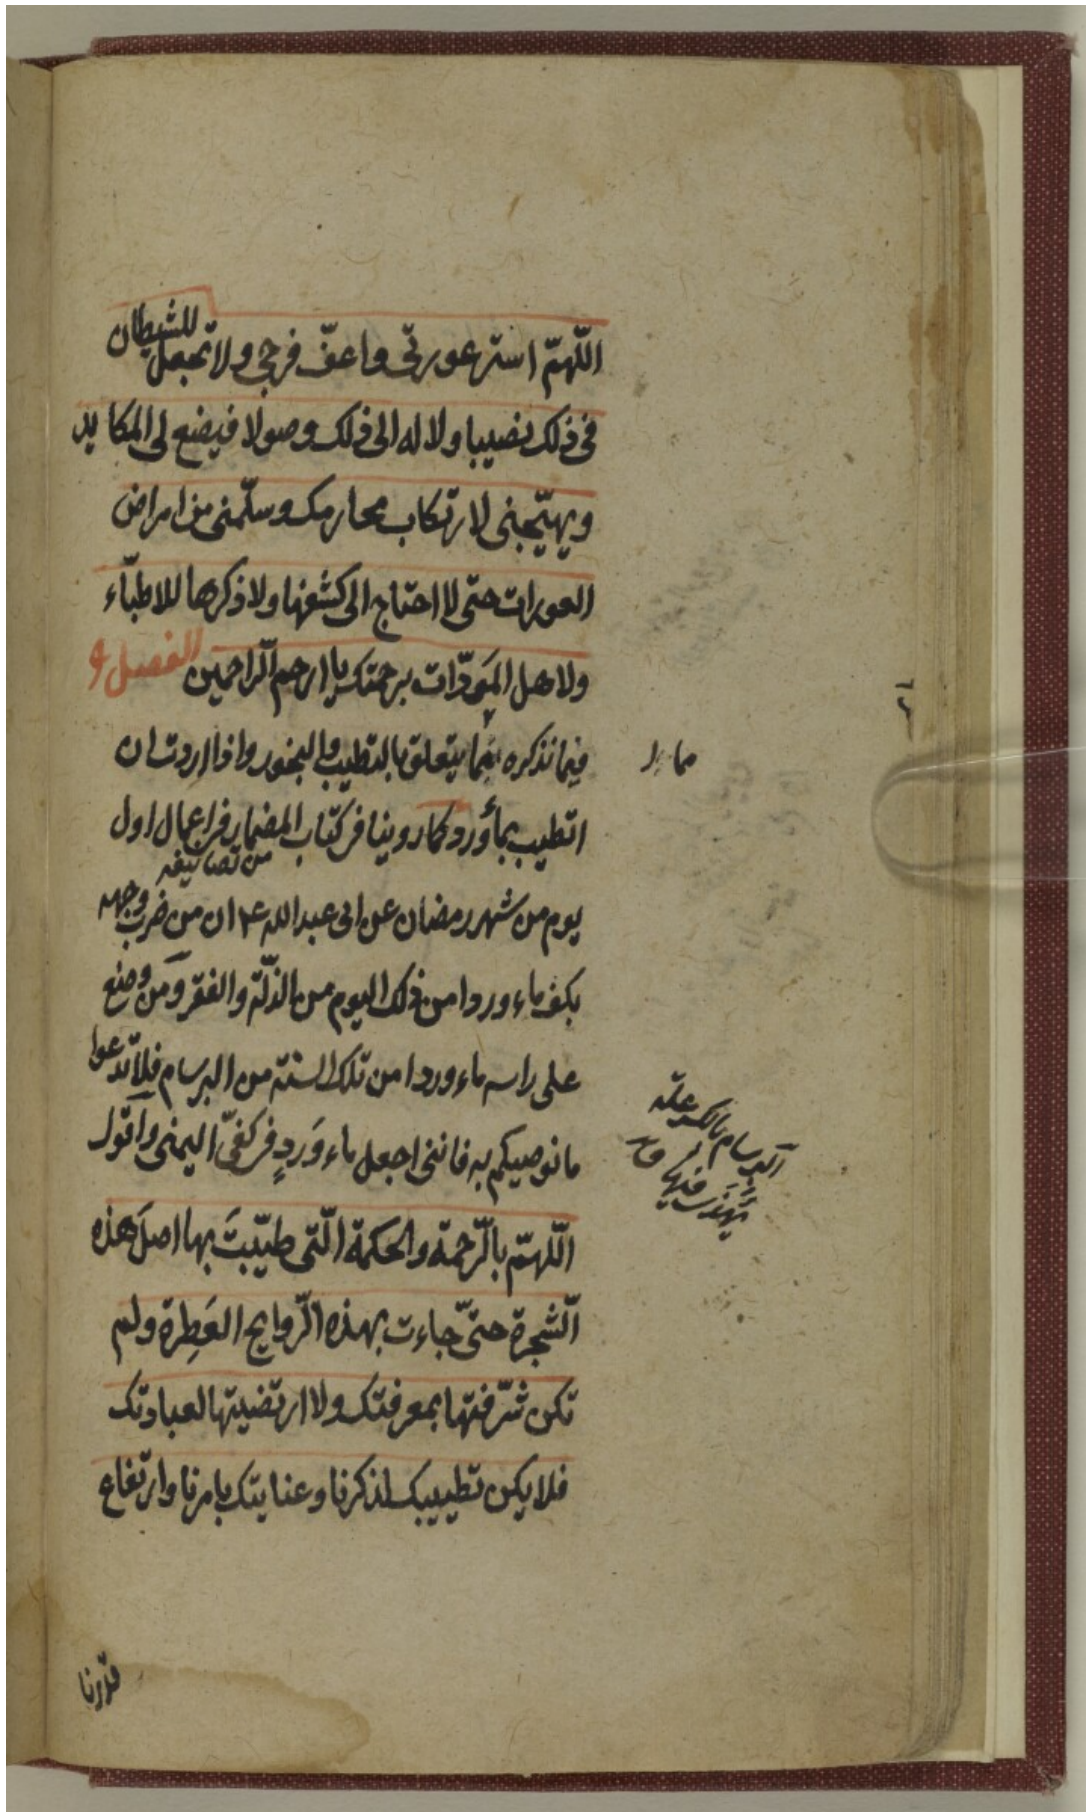 اللّهمّ استر عورتي واعفّ فرجي ولا تجعل للشيطان
في ذلك نصيبا ولا له الى ذلك وصولا فيضع لي المكايد
ويهيّجنى لارتكاب محارمك وسلّمنى من امراض
العورات حتى لا احتاج الى كشفها ولا ذكرها للاطبّاء
ولاهل المودّات برحمتك يا ارحم الرّاحمين الفصل و
فيما نذكره مما يتعلق بالتطيب والبخور واذا اردت ان
اتطيب بمأورد كما روينا في كتاب المضمار في اعمال اول
من تصانيفه
يوم من شهر رمضان عن ابى عبد الله ع ان من ضرب وجهه
بكف ماء ورد امن ذلك اليوم من الذلّة والفقر ومن وضع
على راسه ماء ورد امن تلك السنة من البرسام فلا تدعوا
ما نوصيكم به فاننى اجعل ماء وَردٍ في كفّي اليمنى واقول
اللّهمّ بالرّحمة والحكمة الّتى طيّبتَ بها اصلَ هذه
الشّجرة حتىّ جاءت بهذه الرّوايح العَطِرة ولم
تكن شرّفتها بمعرفتك ولا ارتضيتها لعبادتك
فلا يكن تطييبك لذكرنا وعنايتك بامرنا وارتفاع
قدرنا
البرسام بالكسر علة
يهذى فيها ق